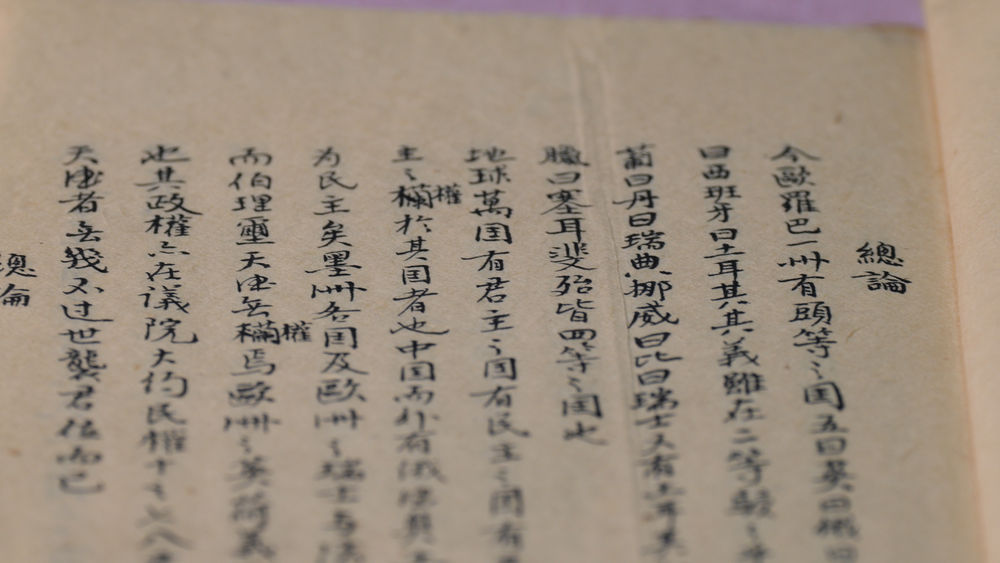 總論
今歐羅巴一洲有頭等之国五曰英曰俄曰
曰西班牙曰土耳其其義雖在二等
葡曰丹曰瑞典挪威曰比曰瑞士又有土耳其
臘曰塞耳斐殆皆四等之国也
地球萬国有君主之国有民主之国有
主之欄權於其国者也中国而外有俄
为民主矣墨洲各国及歐洲之瑞士与法
而伯理璽天德無欄權焉歐洲之英荷義
也其政權亦在議院大约民權十之七八
天德者無幾不过世襲君位而已
總論